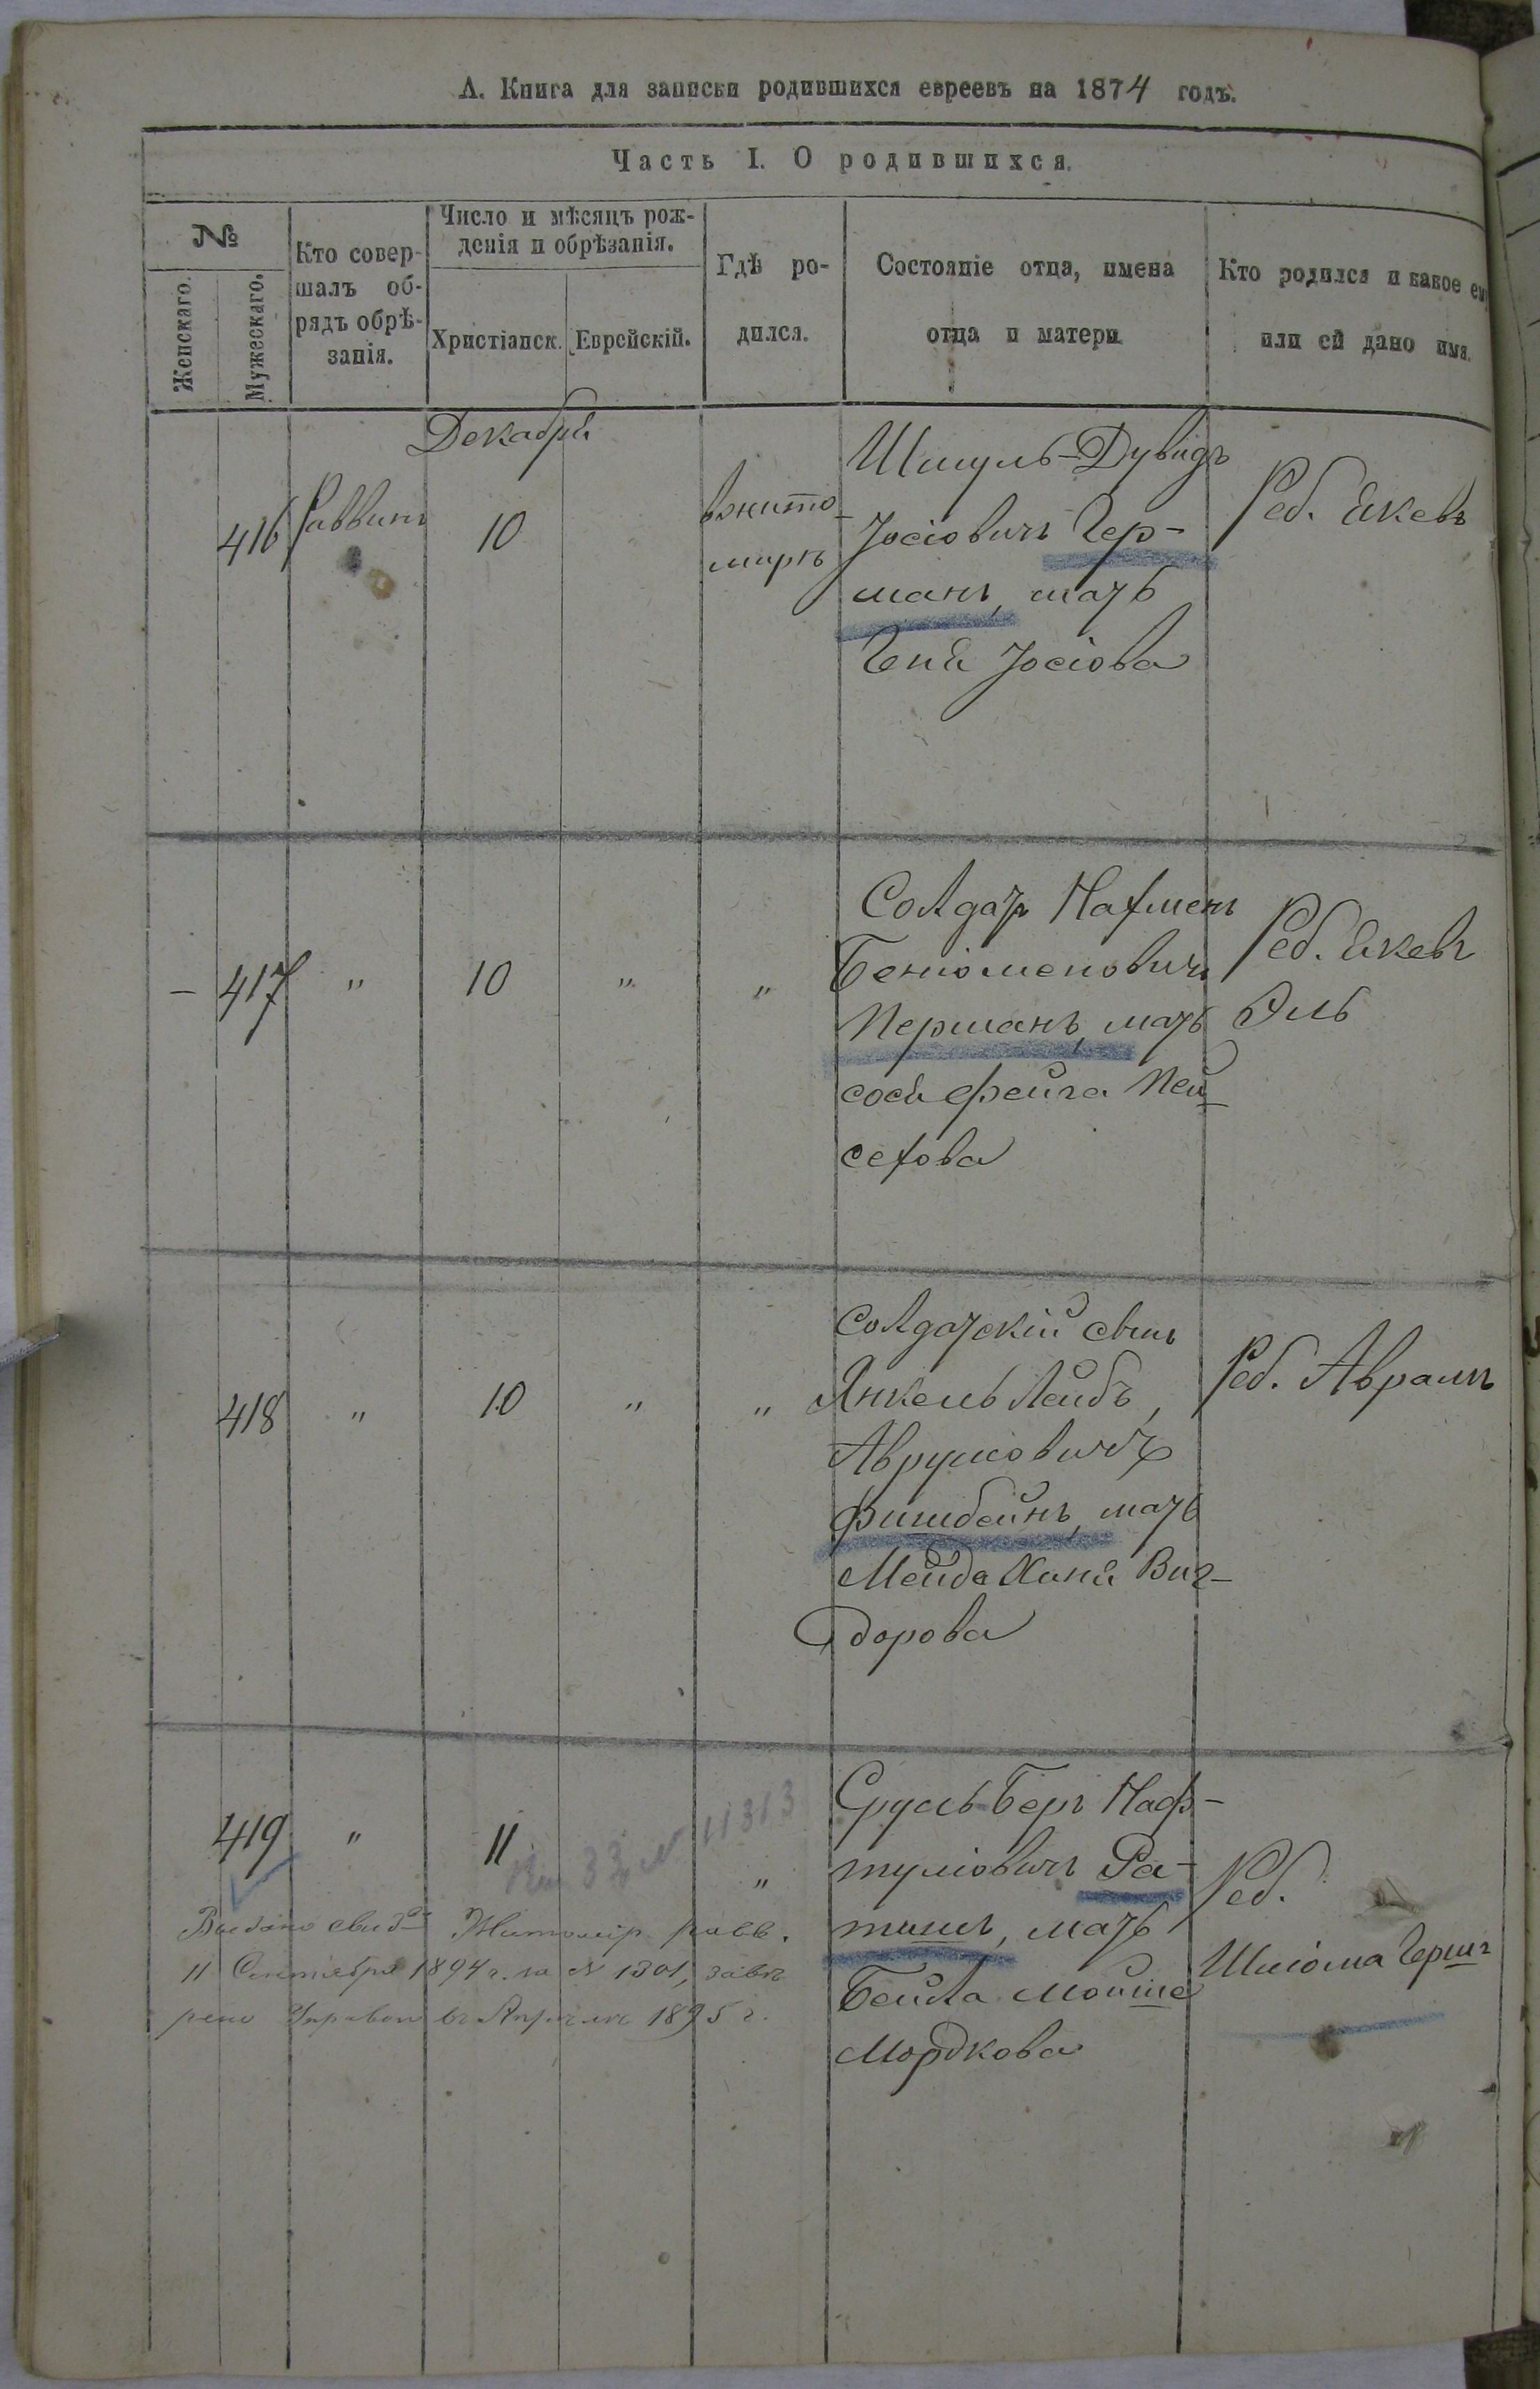 А. Книга для записки родившихся евреевъ на 1874 годъ.
Часть I. О родившихся.
№
Женскаго.
Мужескаго.
Кто совер-
шалъ об-
рядъ обрѣ-
занія.
Число и мѣсяцъ рож-
денія и обрѣзанія.
Христіанск.
Еврейскій.
Гдѣ ро-
дился.
Состояніе отца, имена
отца и матери.
Кто родился и какое ему
или ей дано имя.
Декабря
416
Раввинъ
10
вжито-
миръ
Шмуль-Дувидъ
Іосіовичъ Гер-
манъ, мать
Геня Іосіова
Реб. Якевъ
– 417 " 10 " "
Солдат Нахменъ
Беніоменовичъ
Перманъ, мать
сося Фейга Пей-
сехова
Реб. Якевъ
Эль
418 " 10 " "
Солдатскій сынъ
Янкель Лейбъ,
Аврумовичъ
Фишбейнъ, мать
Мейда Ханя Виг-
дорова
Реб. Аврамъ
419 " 11 "
№ 11313
Сруль-Беръ Наф-
туліовичъ Ра-
тинъ, мать
Бейла Мойше
Мордкова
Реб.
Шліома Герш
Выдано свид. Житомір. равв.
11 Сентября 1894 г. за № 1301, завѣ
рено Управой въ Апрѣлѣ 1895 г.